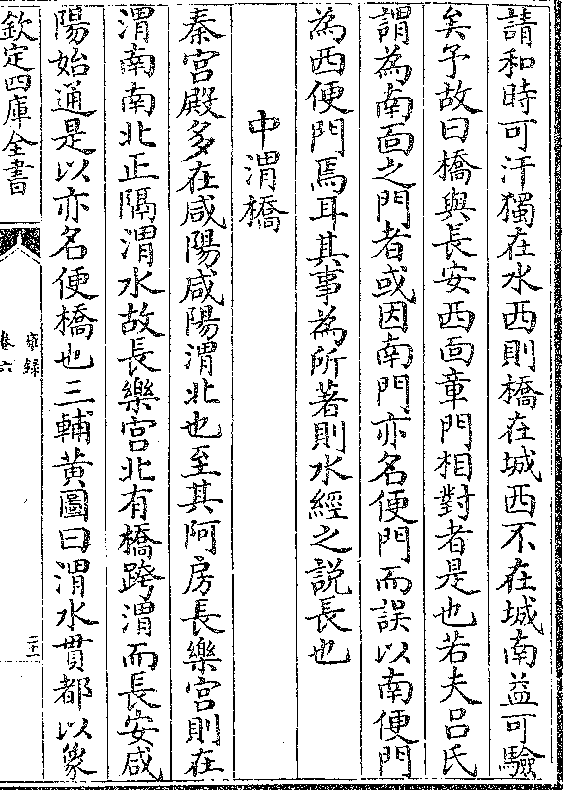 請和時可汗獨在水西則橋在城西不在城南益可驗
矣予故曰橋與長安西靣章門相對者是也若夫吕氏
謂為南靣之門者或因南門亦名便門而誤以南便門
為西便門焉耳其事為所著則水經之説長也
中渭橋
秦宫殿多在咸陽咸陽渭北也至其阿房長樂宫則在
渭南南北正隔渭水故長樂宫北有橋跨渭而長安咸
陽始通是以亦名便橋也三輔黄圖曰渭水貫都以象
欽定四庫全書
雍録
卷六